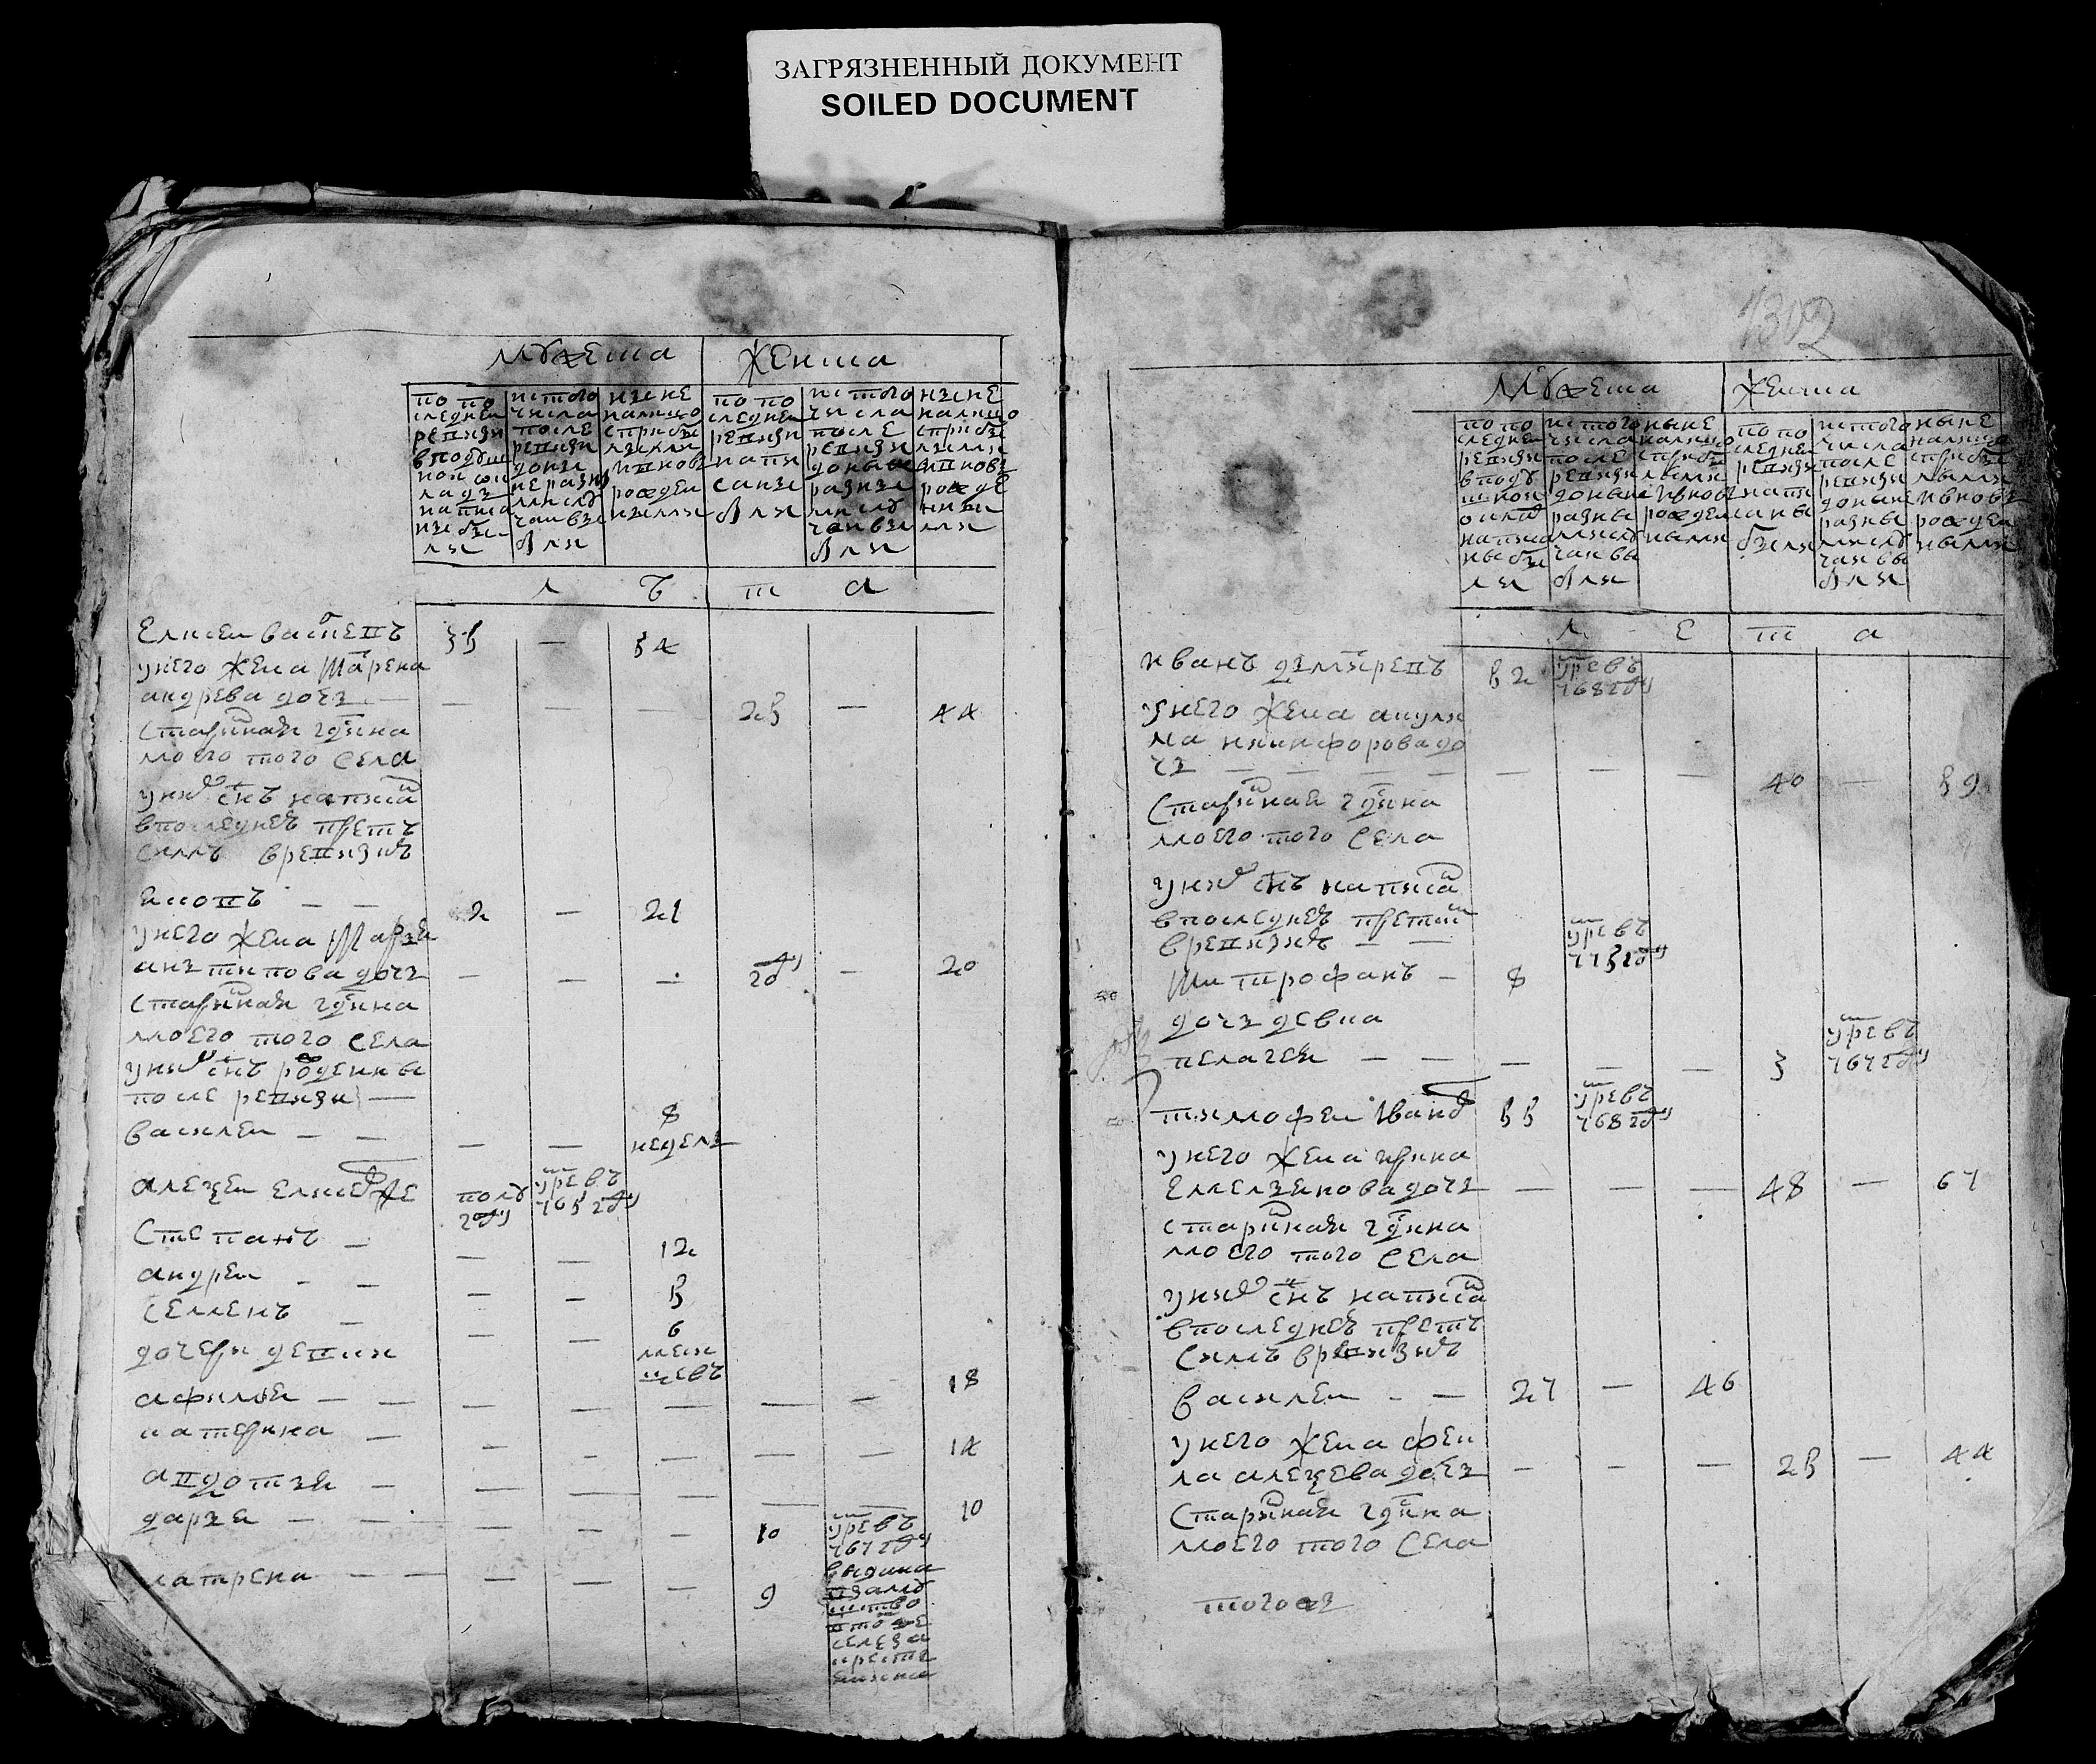 ЗАГРЯЗНЕННЫЙ ДОКУМЕНТ
SOILED DOCUMENT
мужеска женска
по по
следнеи
ревизи
в подуш
ном ок
ладъ
написа
ны бы
ли
ис того
числа
после
ревизи
доны
не разны
ми слу
чаи вы
были
ныне
налицо
с прибы
лыми
и вновь
рожден
ными
по по
следнеи
ревизи
напи
саны
были
ис того
числа
после
ревизи
доныне
разны
ми слу
чаи вы
были
ныне
налицо
с прибы
лыми
и вновь
рожде
ными
л ѣ т а
Елисеи васильевъ 35 — 54
у него жена матрена
андреева дочь — — — 25 — 44
старинная
моего того села
у них снъ написан
в последнеи претъ
симъ в ревизиѣ
антонъ — — 2 — 21
у него жена марья
антипова дочь — — — году — 20
старинная
моего того села
у них снъ рожденны
после ревизи —
василеи — — — — 8
неделъ
алексеи елисеев же полу
году умре въ
765 году
степанъ — — — 12
андреи — — — — 5
семенъ — — — 6
меся
цевъ
дочери девки
афимья — — — — — — — 18
катерина — — — — — — 14
авдотья — — — — — 10
дарья — — — — — 10 умре въ
767 году
матрена — — — — — 9 выдана
в замуж
ство
в то же
село за
крестья
нина
1302
мужеска женска
по по
следнеи
ревизи
в поду
шном
окладѣ
написа
ны бы
ли
ис того
числа
после
ревизи
доныне
разны
ми слу
чаи вы
были
ныне
налицо
с прибы
лыми
и вновь
рожден
ными
по по
следнеи
ревизи
напи
саны
были
ис того
числа
после
ревизи
доныне
разны
ми слу
чаи вы
были
ныне
налицо
с прибы
лыми
и вновь
рожден
ными
л е т а
иванъ дмитреевъ 52 умре въ
768 году
у него жена акули
на никифорова до
чь — — — — — — — 40 — 59
старинная
моего того села
у них снъ написан
в последнеи претъ
в ревизиѣ — —
митрофанъ — 8 умре въ
775 году
дочь девка
пелагея — — — — — 3 умре въ
767 году
тимофеи иванов 55 умре въ
768 году
у него жена ирина
емельянова дочь — — — 48 — 67
старинная
моего того села
у них снъ написан
в последнеи претъ
симъ в ревизиѣ
василеи — — 27 — 46
у него жена фек
ла алексеева дочь — — — 25 — 44
старинная
моего того села
того ж